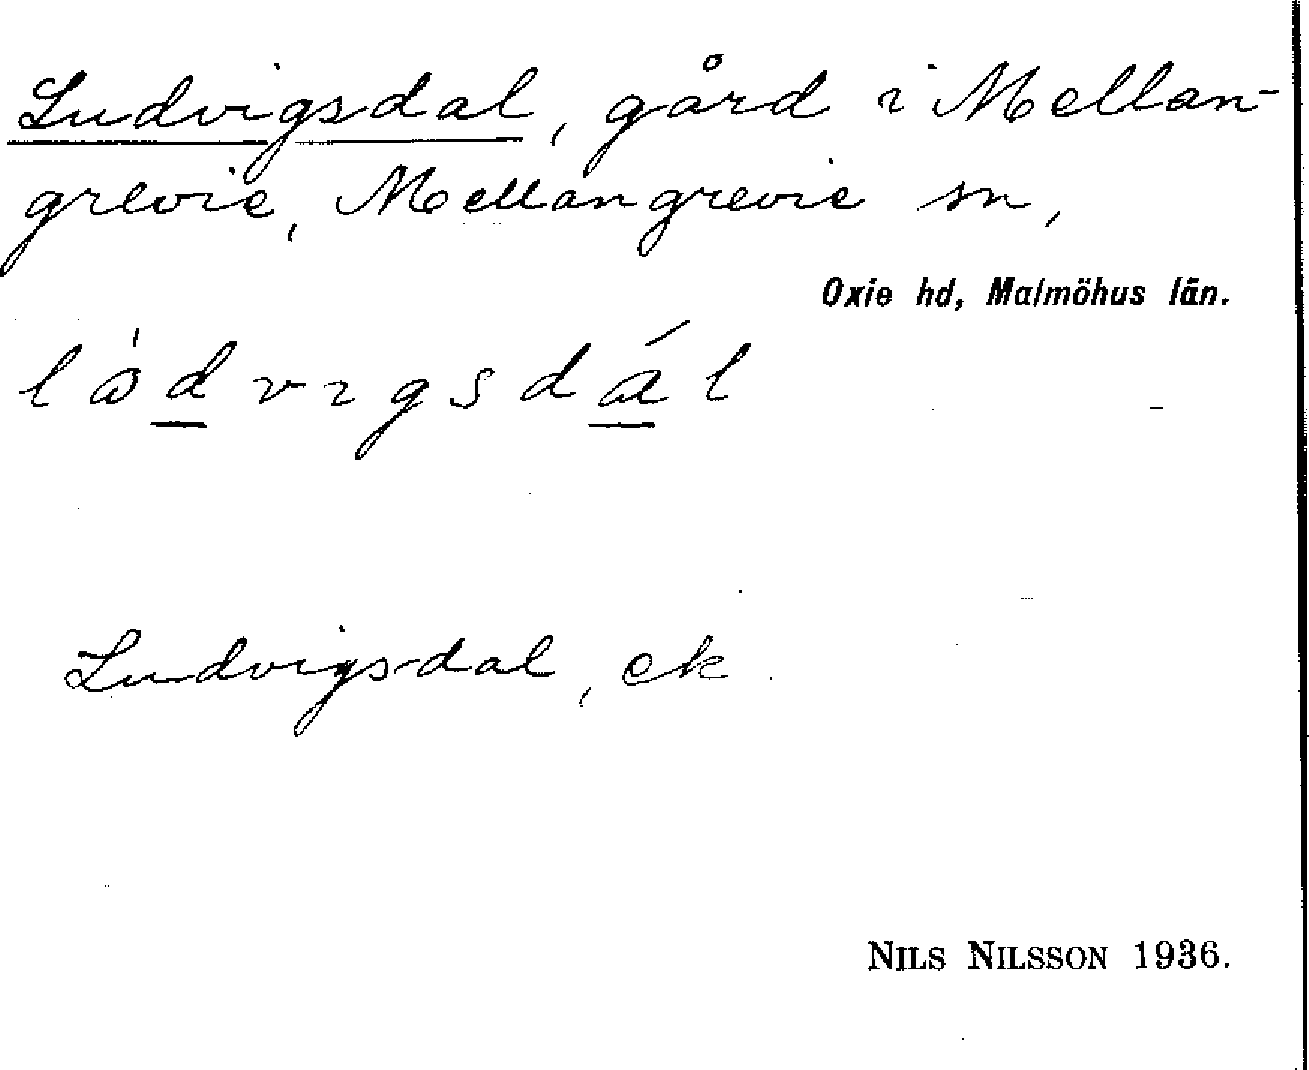 Ludvigsdal, gård i Mellan-
grevie, Mellangrevie sn,
Oxie hd, Malmöhus län.
Ludvigsdal, ek
NILS NILSSON 1936.